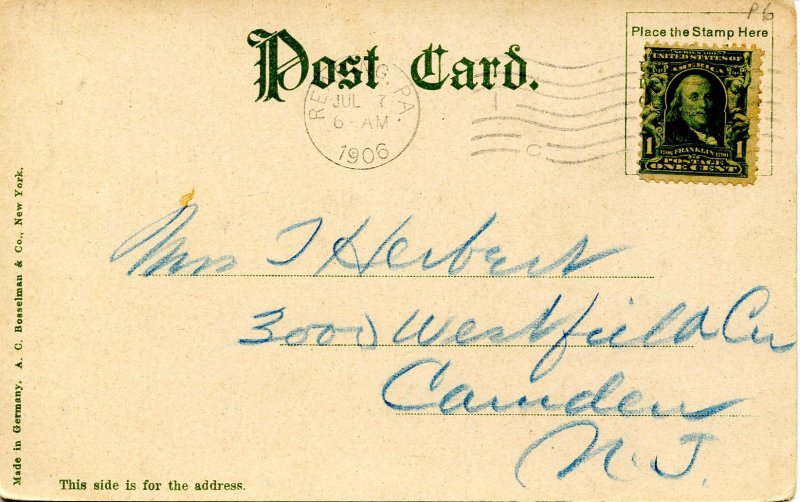 P6
Place the Stamp Here
Post Card.
READING, PA.
JUL 7
6-AM
1906
SERIES 1902
UNITED STATES OF
AMERICA
1 FRANKLIN 1
POSTAGE
ONE CENT
Mrs J Herbert
3000 Westfield Av
Camden
N. J.
This side is for the address.
Made in Germany. A. C. Bosselman & Co., New York.